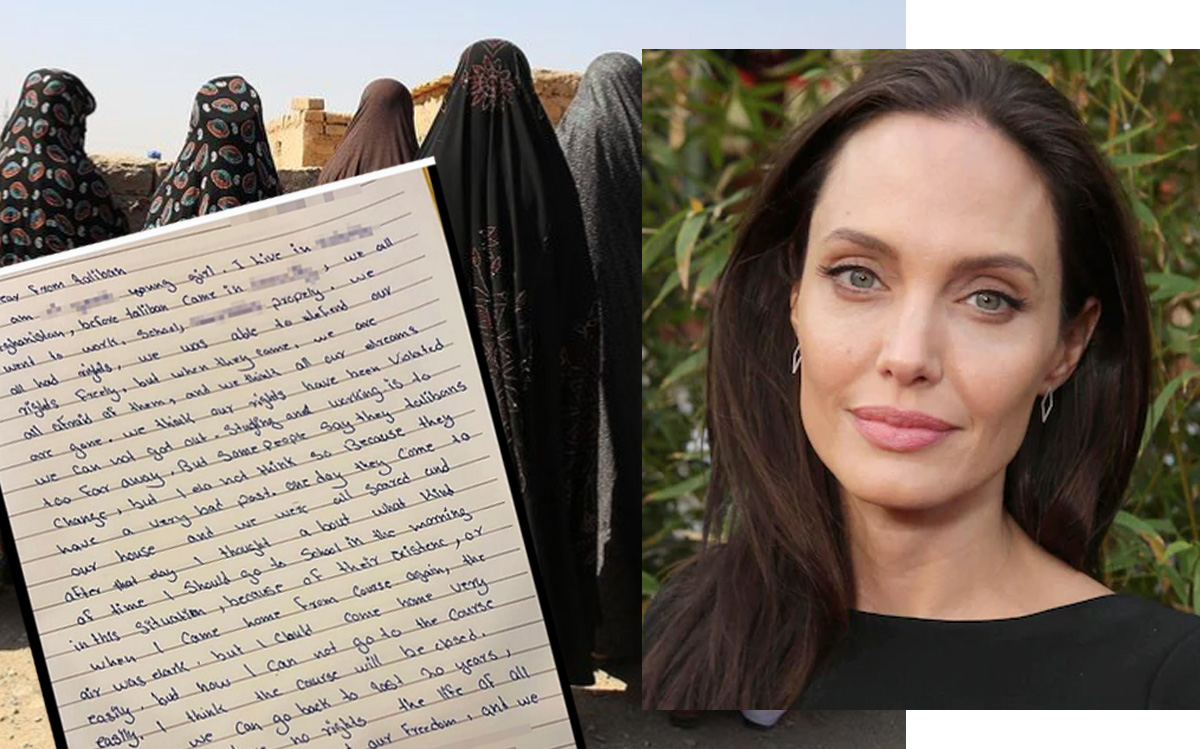 ear From Taliban
am young girl. I live in
fghanistan, before taliban came in , we all
went to work, School, propely, we
all had rights, we was able to defend our
rights freely, but when they came, we are
all afraid of them, and we think all our dreams
are gone. we think our rights have been violated
we can not got out. Studying and working is to
too far away, But some people say they talibans
Change, but I do not think so Because they
have a very bad past. one day they come to
our house and we were all scared and
after that day I thought a bout what kind
of time I Should go to School in the morning
in this situation, because of their existenc, or
when I came home from Course again, the
air was dark. but I Could come home very
easily, but now I can not go to the Course
easily. I think the course will be closed.
we can go back to last 20 years,
no rights the life of all
our Freedom, and we